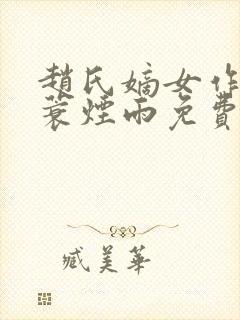 趙氏嫡女作
蓑煙雨免費
臧美華